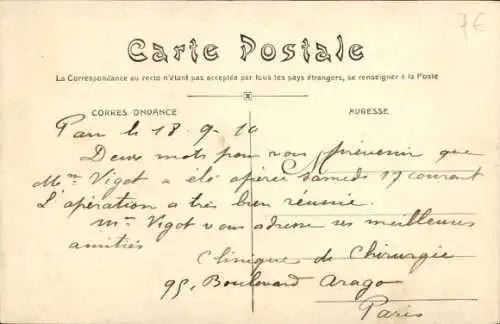 7€
Carte Postale
La Correspondance au recto n'étant pas acceptée par tous les pays étrangers, se renseigner à la Poste
CORRES ONDANCE
ADRESSE
Paris le 18-9-10
Deux mots pour vous prévenir que
Mme Vigot a été opérée Samedi 17 courant
L'opération a très bien réussie.
Mme Vigot vous adresse ses meilleures
amitiés
Clinique de Chirurgie
95, Boulevard Arago
Paris